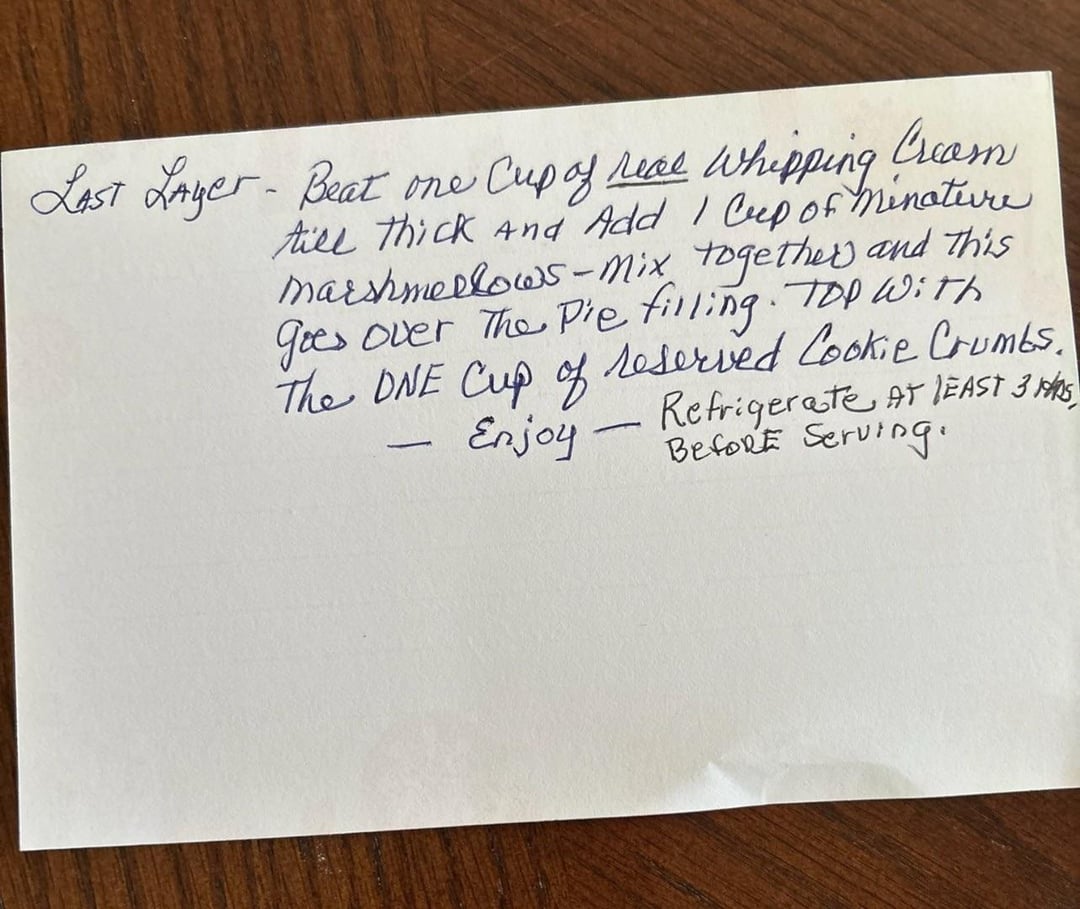 Last Layer - Beat one Cup of real Whipping Cream
till thick and Add 1 Cup of Minature
marshmellows - mix together and this
goes over The Pie filling. TOP With
The ONE Cup of reserved Cookie Crumbs.
— Enjoy — Refrigerate AT lEAST 3 HRS,
BEFORE Serving.